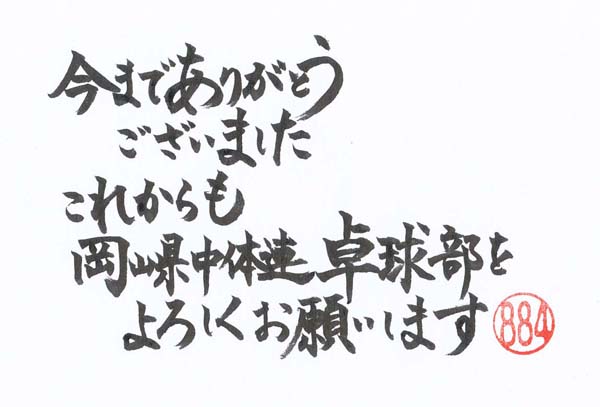 今までありがとう
ございました
これからも
岡山県中体連卓球部を
よろしくお願いします
884